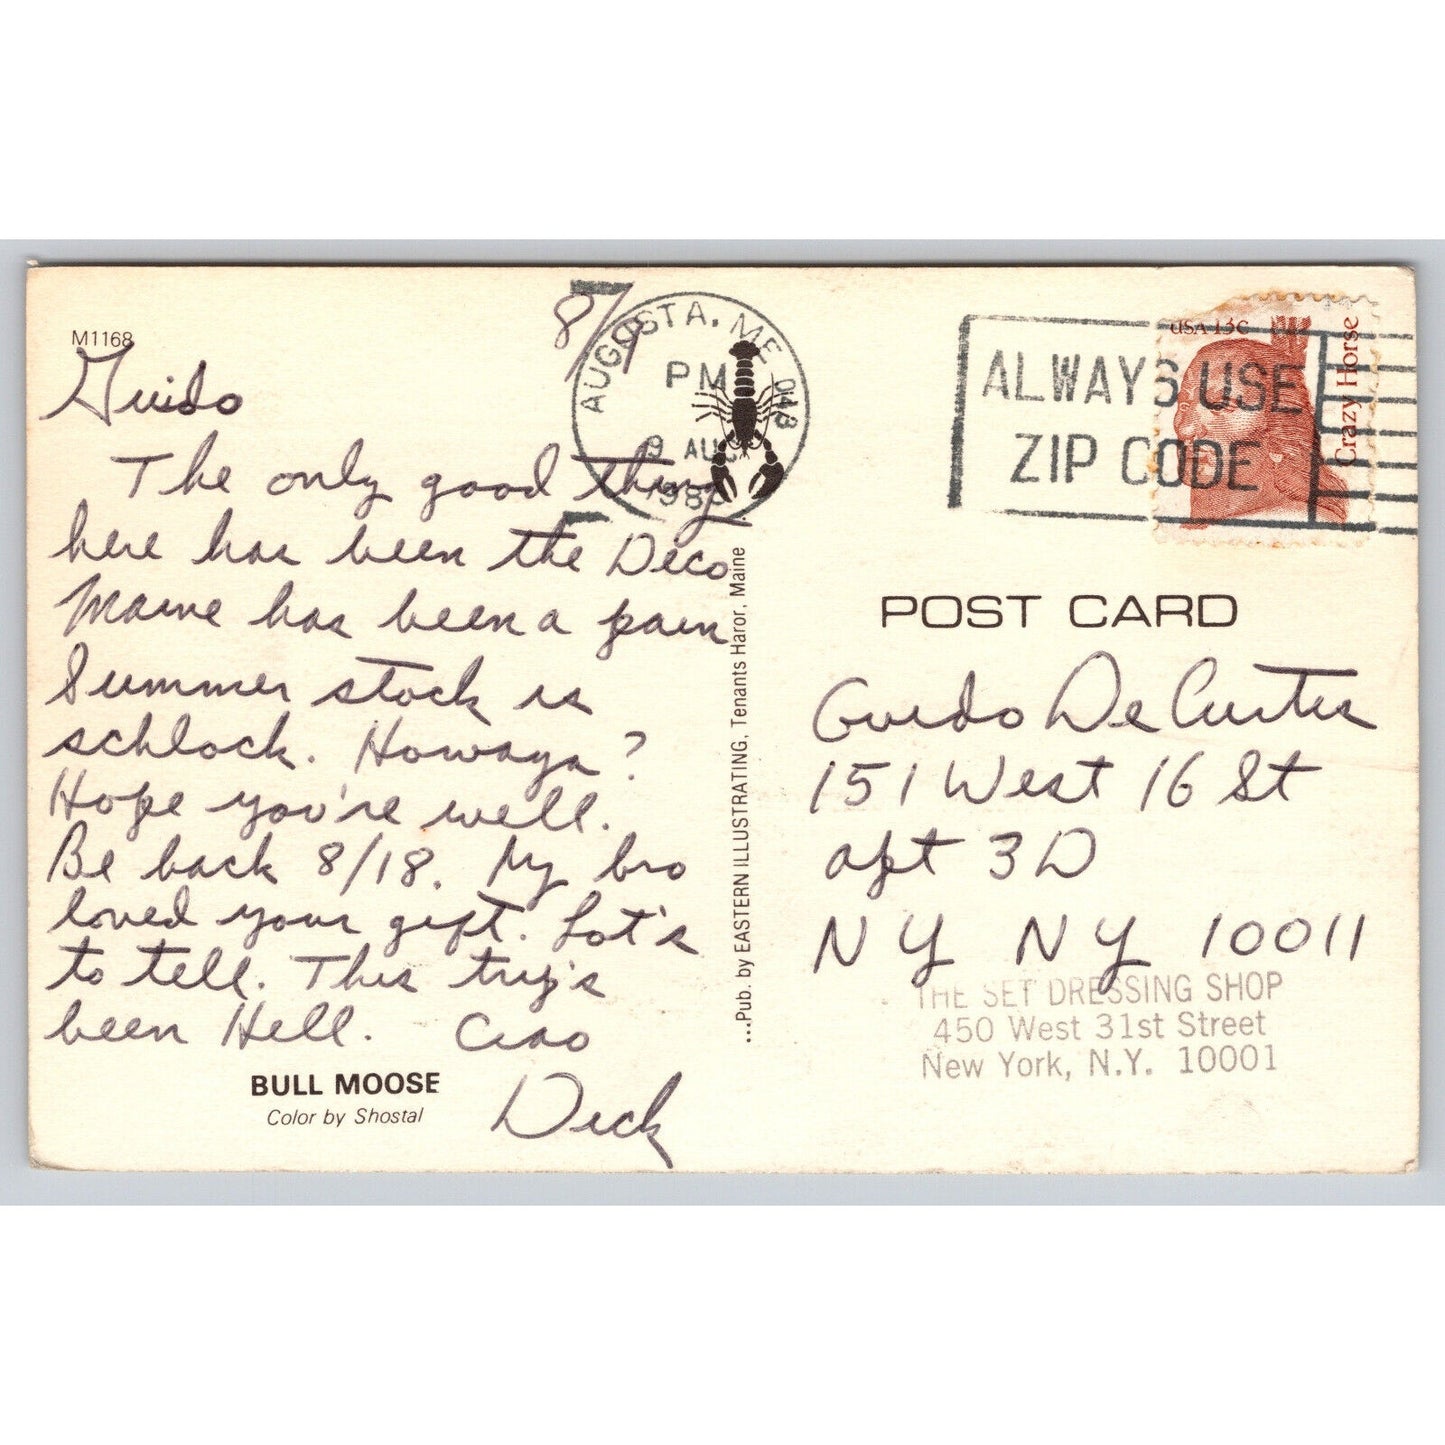 M1168
8/9
Guido
The only good thing
here has been the Deco
Maine has been a pain
Summer stock is
schlock. Howaya?
Hope you're well.
Be back 8/18. My bro
loved your gift. Lot's
to tell. This trip's
been Hell. Ciao
Dick
BULL MOOSE
Color by Shostal
...Pub. by EASTERN ILLUSTRATING, Tenants Haror, Maine
AUGUSTA, ME
PM
9 AUG
USA 13c
Crazy Horse
ALWAYS USE
ZIP CODE
POST CARD
Guido De Curtis
151 West 16 St
apt 3D
NY NY 10011
THE SET DRESSING SHOP
450 West 31st Street
New York, N.Y. 10001